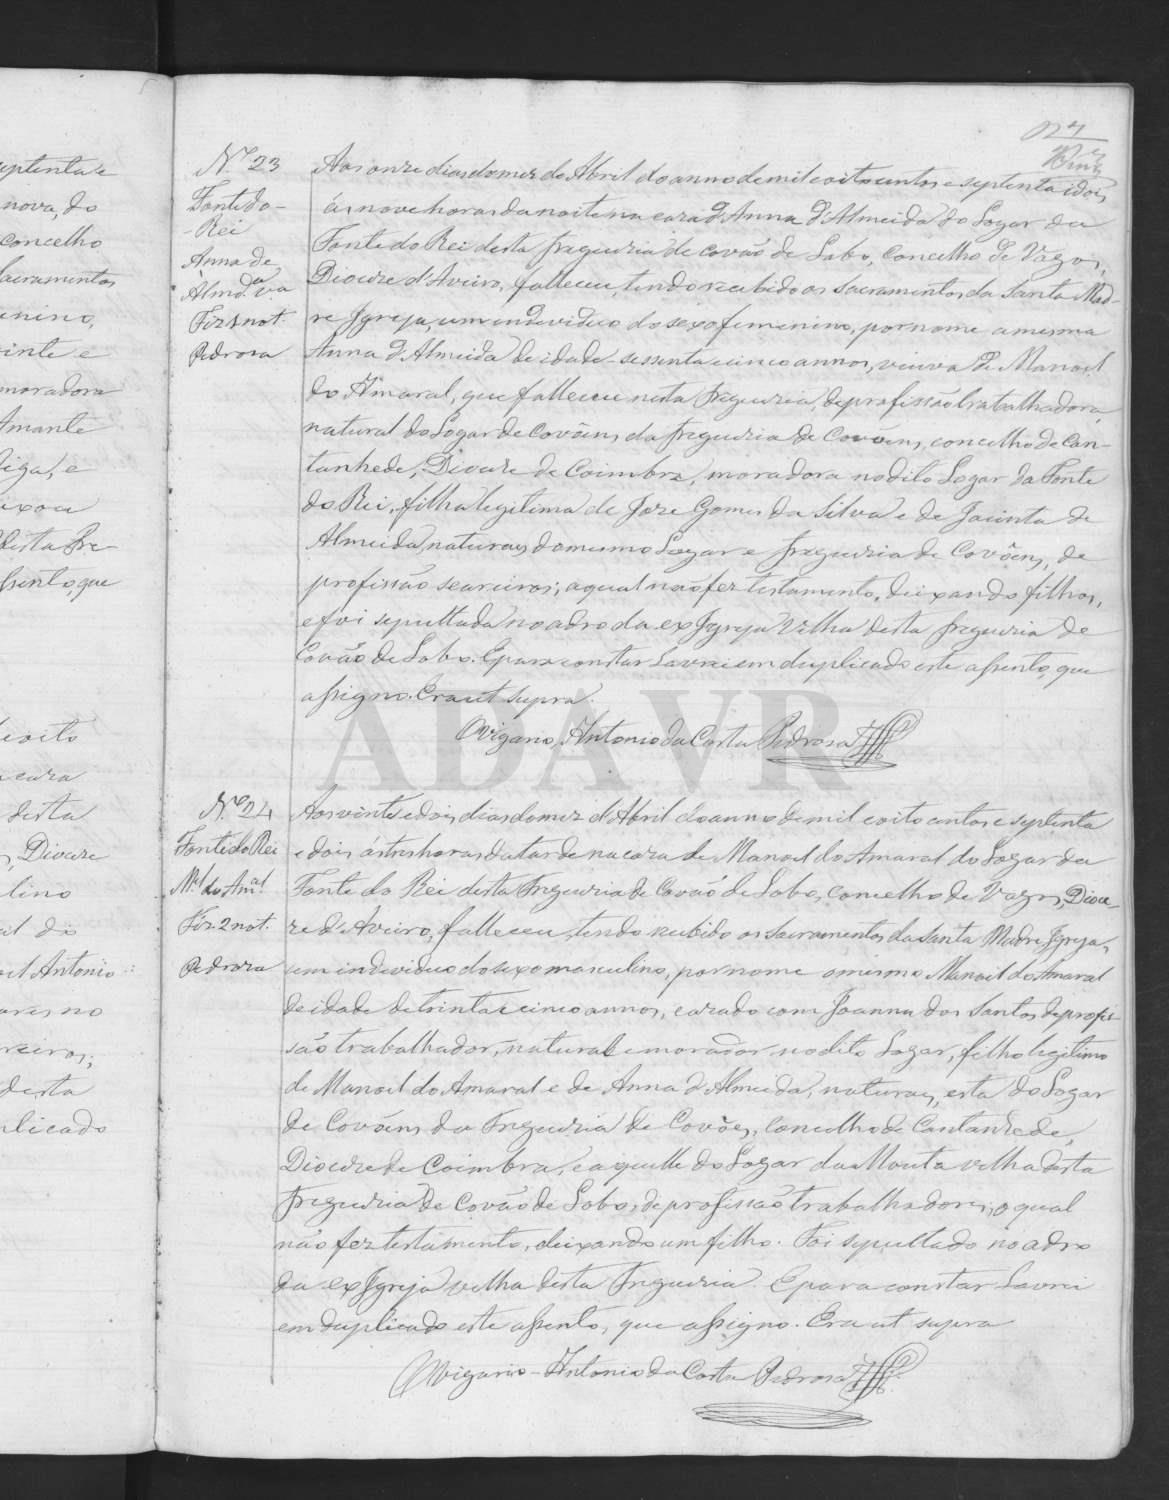 Nº 23
Fonte do-
-Rei
Anna de
Almdª vª
Fiz 1 not.
Pedrosa
Aos onze dias do mez de Abril do anno de mil e oito centos e septenta e dois,
ás nove horas da noite na caza d'Anna d'Almeida do Logar da
Fonte do Rei desta freguezia de Covão de Lobo, Concelho de Vagos,
Diocese d'Aveiro, falleceu, tendo recebido os sacramentos da Santa Mad-
re Igreja, um individuo do sexo femenino, por nome a mesma
Anna d'Almeida de idade sessenta e cinco annos, viuva de Manoel
do Amaral, que falleceu nesta freguezia, de profissão trabalhadora,
natural do Logar de Covões, da freguezia de Covões, concelho de Can-
tanhede, Diocese de Coimbra, moradora no dito Logar da Fonte
do Rei, filha legitima de Jose Gomes da Silva e de Jacinta de
Almeida, naturaes do mesmo Logar e freguezia de Covões, de
profissão seareiros; a qual não fez testamento, deixando filhos,
e foi sepultada no adro da ex Igreja velha desta freguezia de
Covão de Lobo. E para constar lavrei em duplicado este assento, que
assigno. Era ut supra.
O vigario, Antonio da Costa Pedrosa
ADAVR
Nº 24
Fonte do Rei
Mel do Amal
Fiz 2 not.
Pedrosa
Aos vinte e dois dias do mez d'Abril do anno de mil e oito centos e septenta
e dois, ás tres horas da tarde na caza de Manoel do Amaral do Logar da
Fonte do Rei desta Freguezia de Covão de Lobo, Concelho de Vagos, Dioce-
ze d'Aveiro, falleceu, tendo recebido os sacramentos da Santa Madre Igreja,
um individuo do sexo masculino, por nome o mesmo Manoel do Amaral
de idade de trinta e cinco annos, cazado com Joanna dos Santos, de profis-
são trabalhador, natural e morador no dito Logar, filho legitimo
de Manoel do Amaral e de Anna d'Almeida, naturaes, esta do Logar
de Covões da Freguezia de Covões, Concelho de Cantanhede,
Diocese de Coimbra, e aquelle do Logar da Mouta velha desta
freguezia de Covão de Lobo, de profissão trabalhadores; o qual
não fez testamento, deixando um filho. Foi sepultado no adro
da ex Igreja velha desta Freguezia. E para constar Lavrei
em duplicado este assento, que assigno. Era ut supra
O vigario - Antonio da Costa Pedrosa